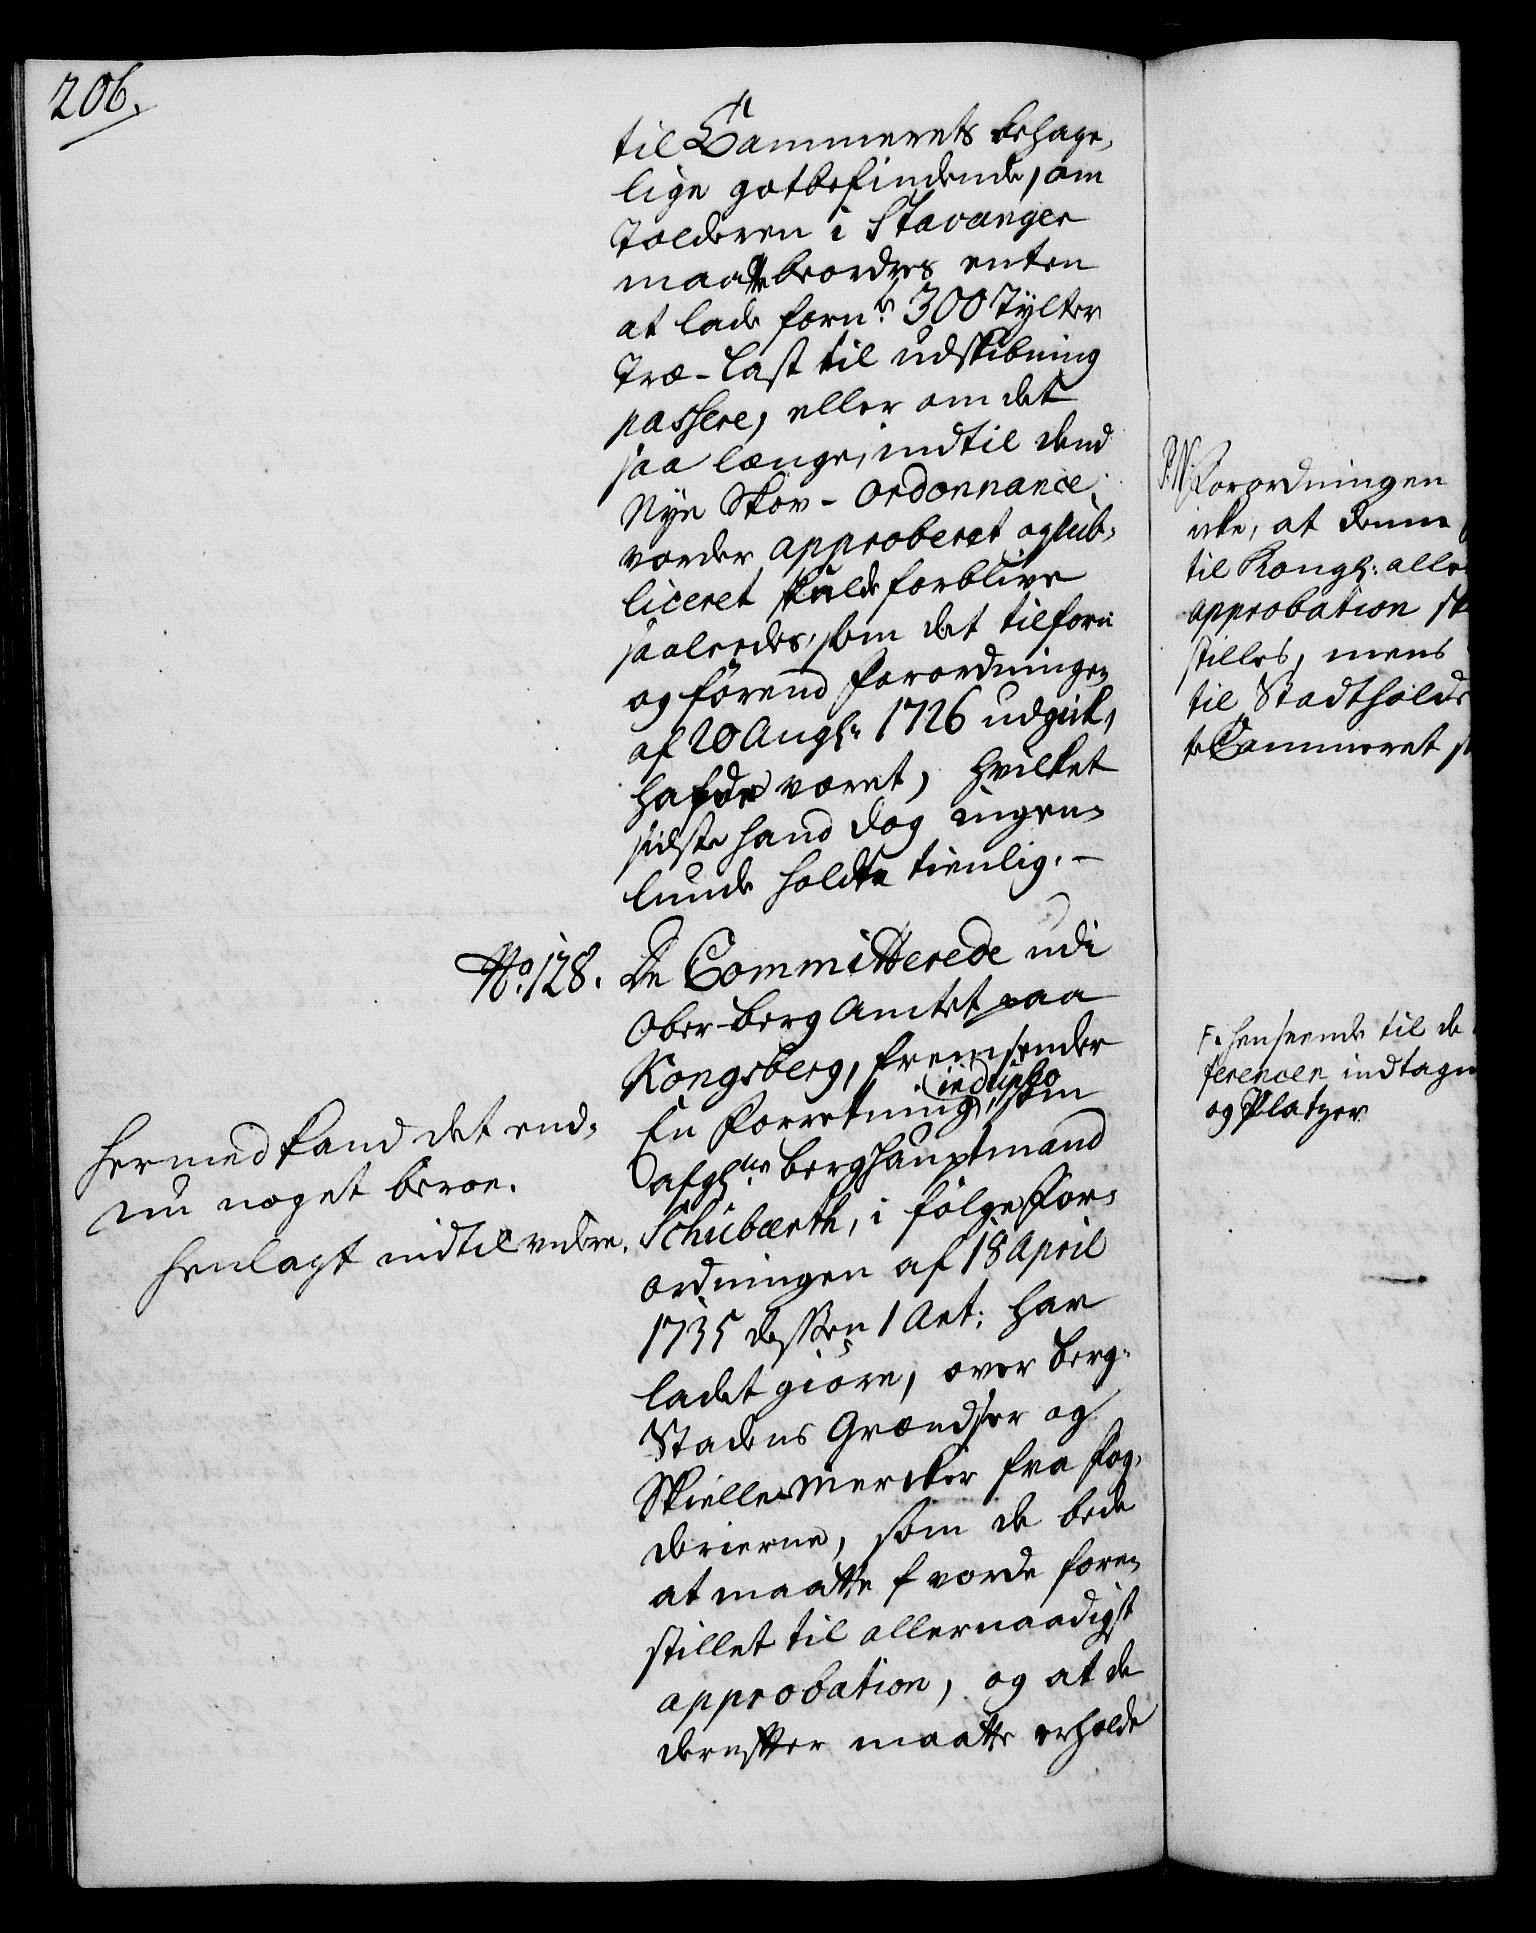 206.
til Cammerets behage,
lige gotbefindende, om
Tolderen i Stavanger
maatte beordres enten
at lade forn.te 300 Tylter
Træ-Last til udskibning
passere, eller om det
saa længe, indtil dend
Nye Skov-ordonnance,
vorder approberet og pub,
liceret skulde forblive
saaleedes, som det tilforn
og förend Forordningen
af 20 Aug: 1726 udgick,
hafde været, hvilket
sidste hand dog ingen,
lunde holdte tienlig. -
No. 128. De Committerede udi
Ober-Berg Amtet paa
Kongsberg, fremsender
in duplo
En Forretning, som
afg: Berghauptmand
Schubarth, i fölge For,
ordningen af 18 April
1735 dessen 1 Art: har
ladet giöre, over Berg,
Stadens Grændser og
Skielle-Mercker fra Fog,
derierne, som de bede
at maatte F vorde fore,
stillet til allernaadigst
approbation, og at de
derefter maatte erholde
Hermed kand det end,
nu noget beroe.
henlagt indtil videre.
Forordningen
icke, at denne
til Kongl: aller
approbation
stilles, mens
til Stadthold
Cammeret
F. henseende til de
ferencer indtagn
og Platzer